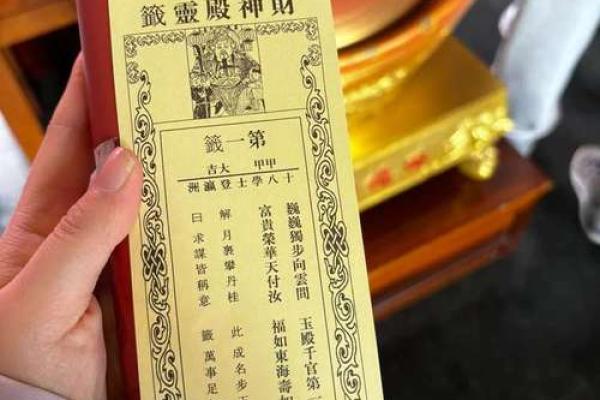 財神殿靈籤
第一籤
甲甲 大吉
十八學士登瀛洲
巍巍獨步向雲間 玉殿千官第一
富貴榮華天付汝 福如東海壽如
解 月裏攀丹桂 此 成名步
曰 求謀皆稱意 籤 萬事足